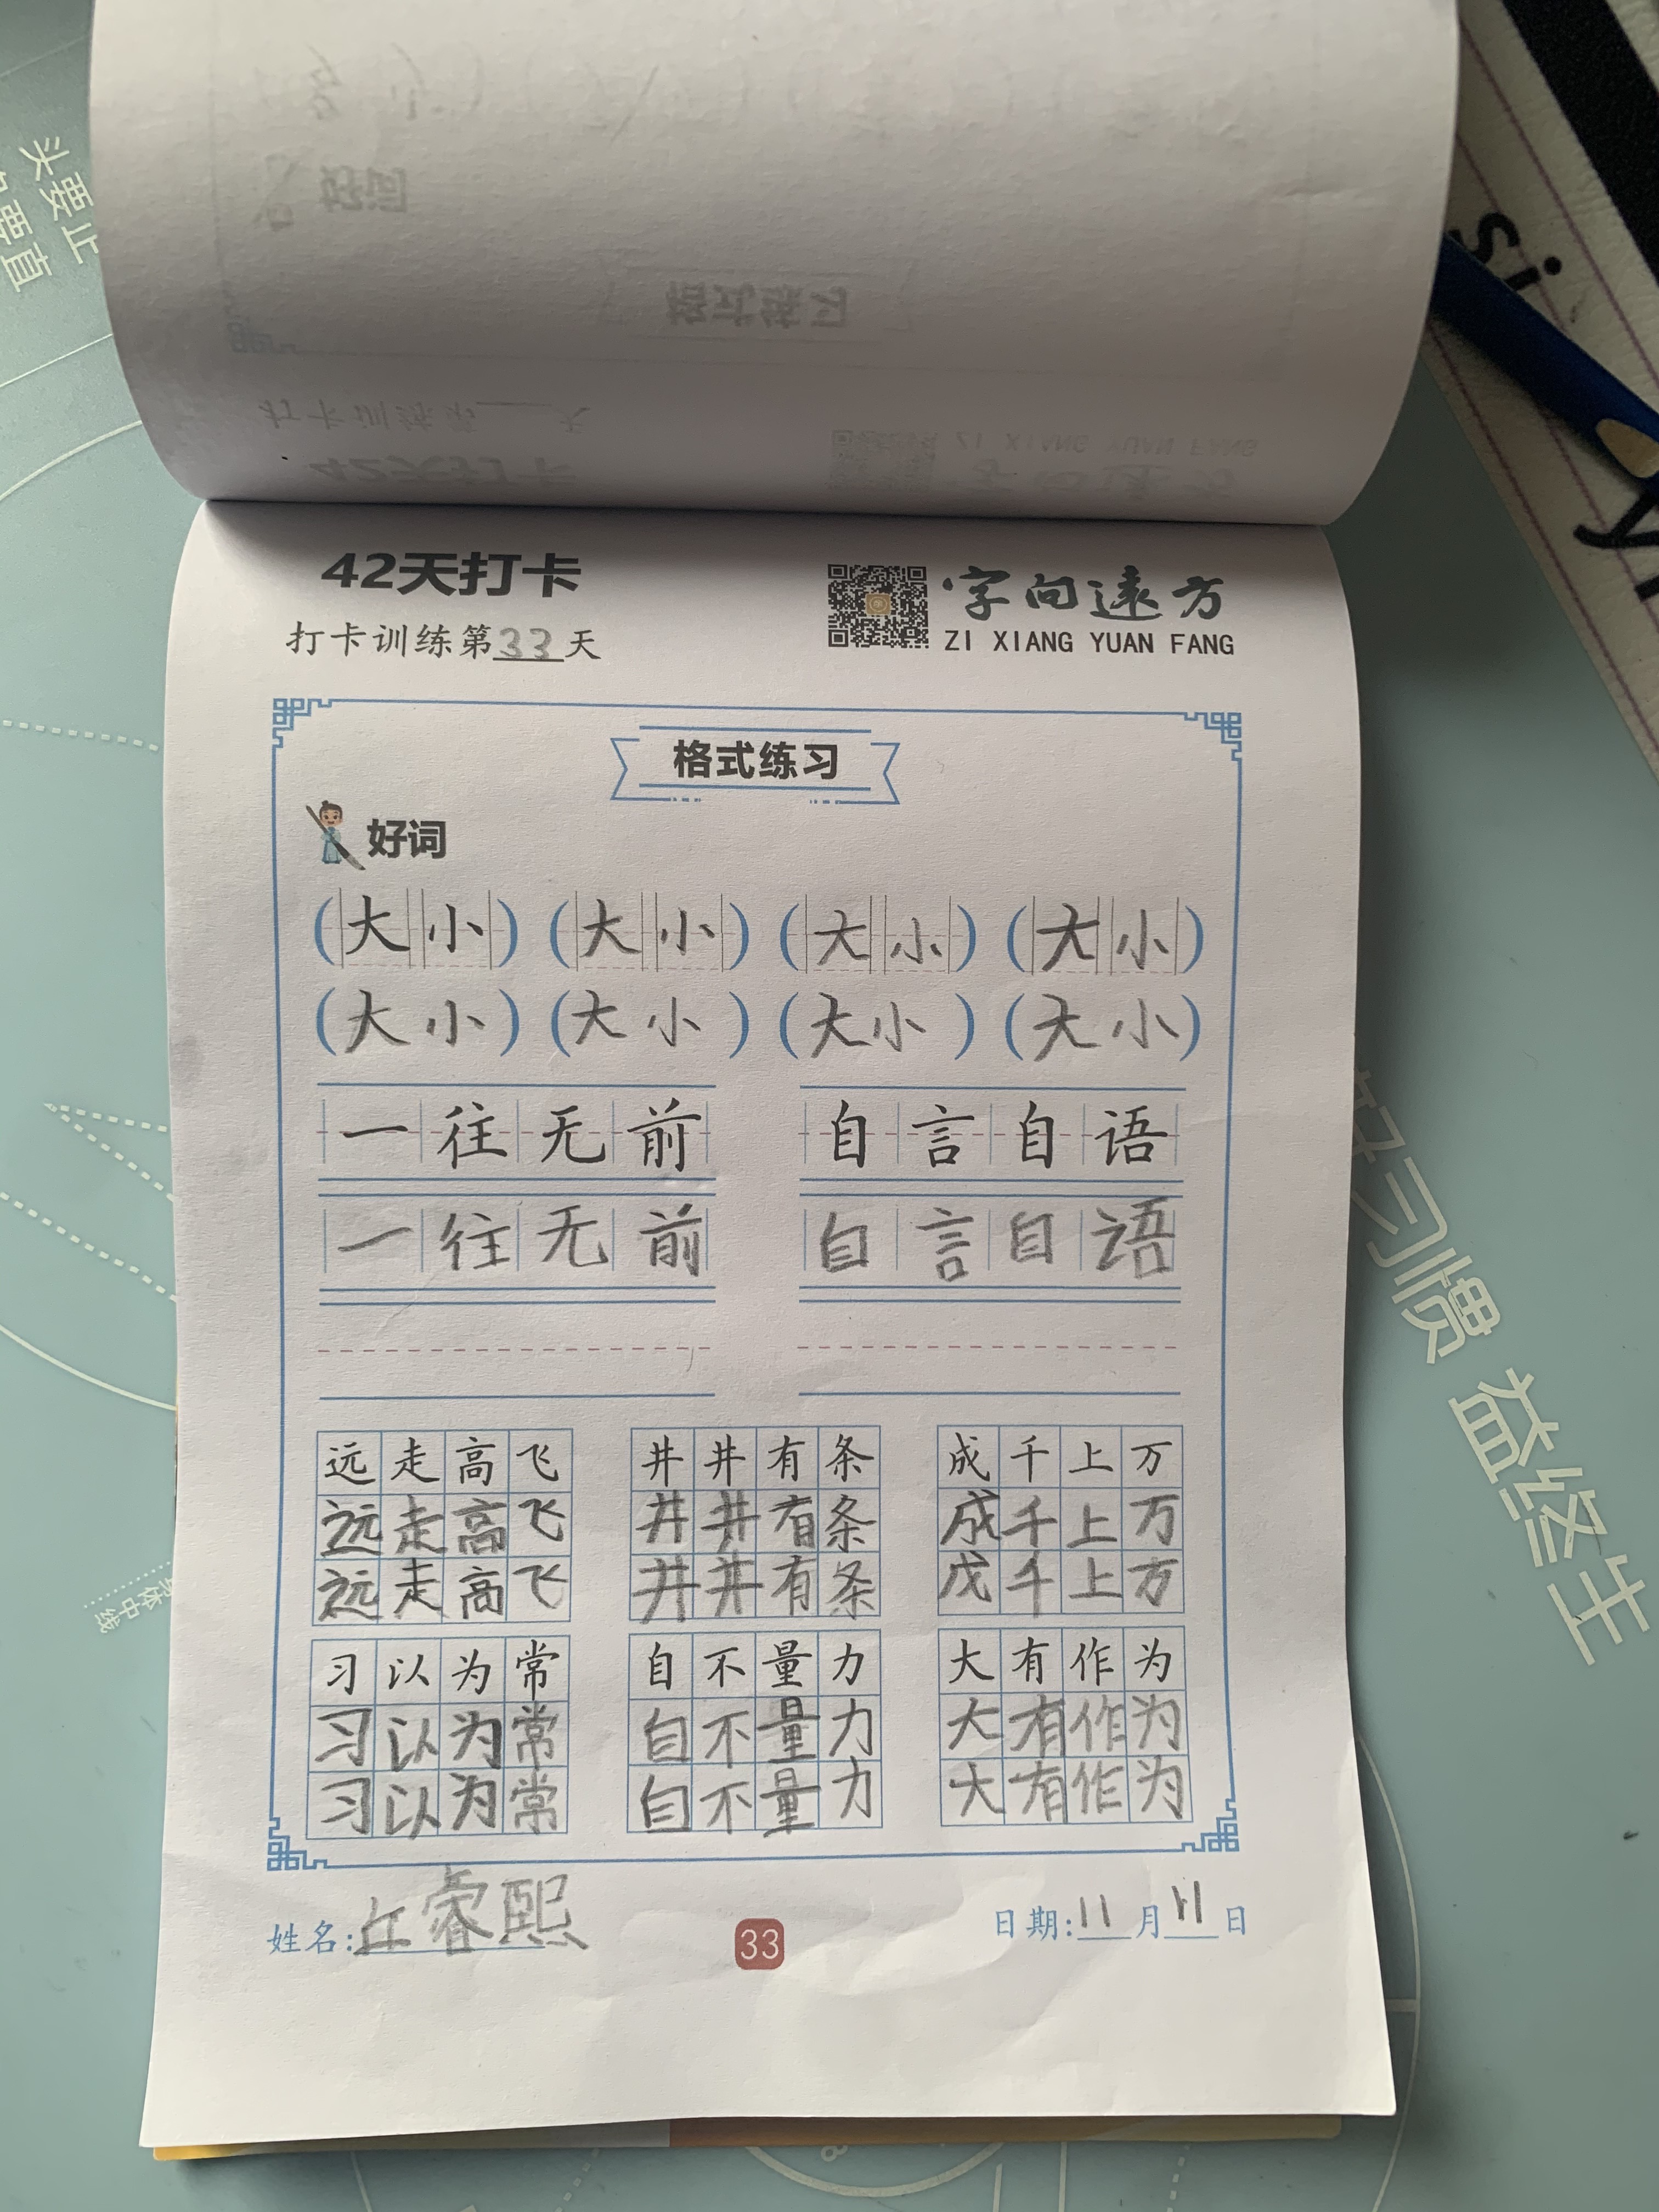 42天打卡
打卡训练第33天
字向远方
ZI XIANG YUAN FANG
格式练习
好词
(大小) (大小) (大小) (大小)
(大小) (大小) (大小) (大小)
一往无前 自言自语
一往无前 自言自语
远走高飞 井井有条 成千上万
远走高飞 井井有条 成千上万
远走高飞 井井有条 戊千上方
习以为常 自不量力 大有作为
习以为常 自不量力 大有作为
习以为常 自不量力 大有作为
姓名:丘睿熙
33
日期:11月11日
头要正
要直
身体中线
好习惯 益终生
si
y